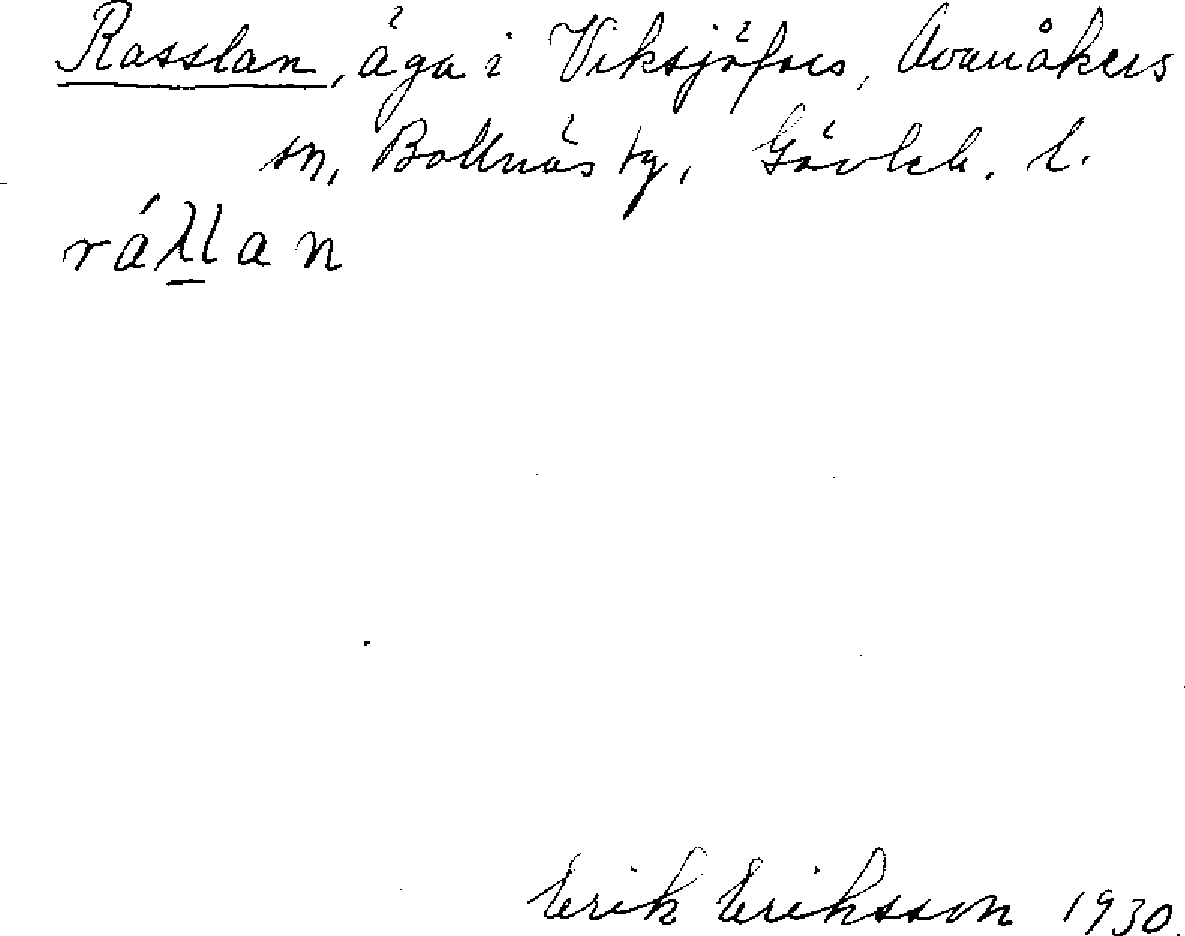 Rasslan, äga i Viksjöfors, Ovanåkers
sn, Bollnäs tg, Gävleb. l.
råλlan
Erik Eriksson 1930.